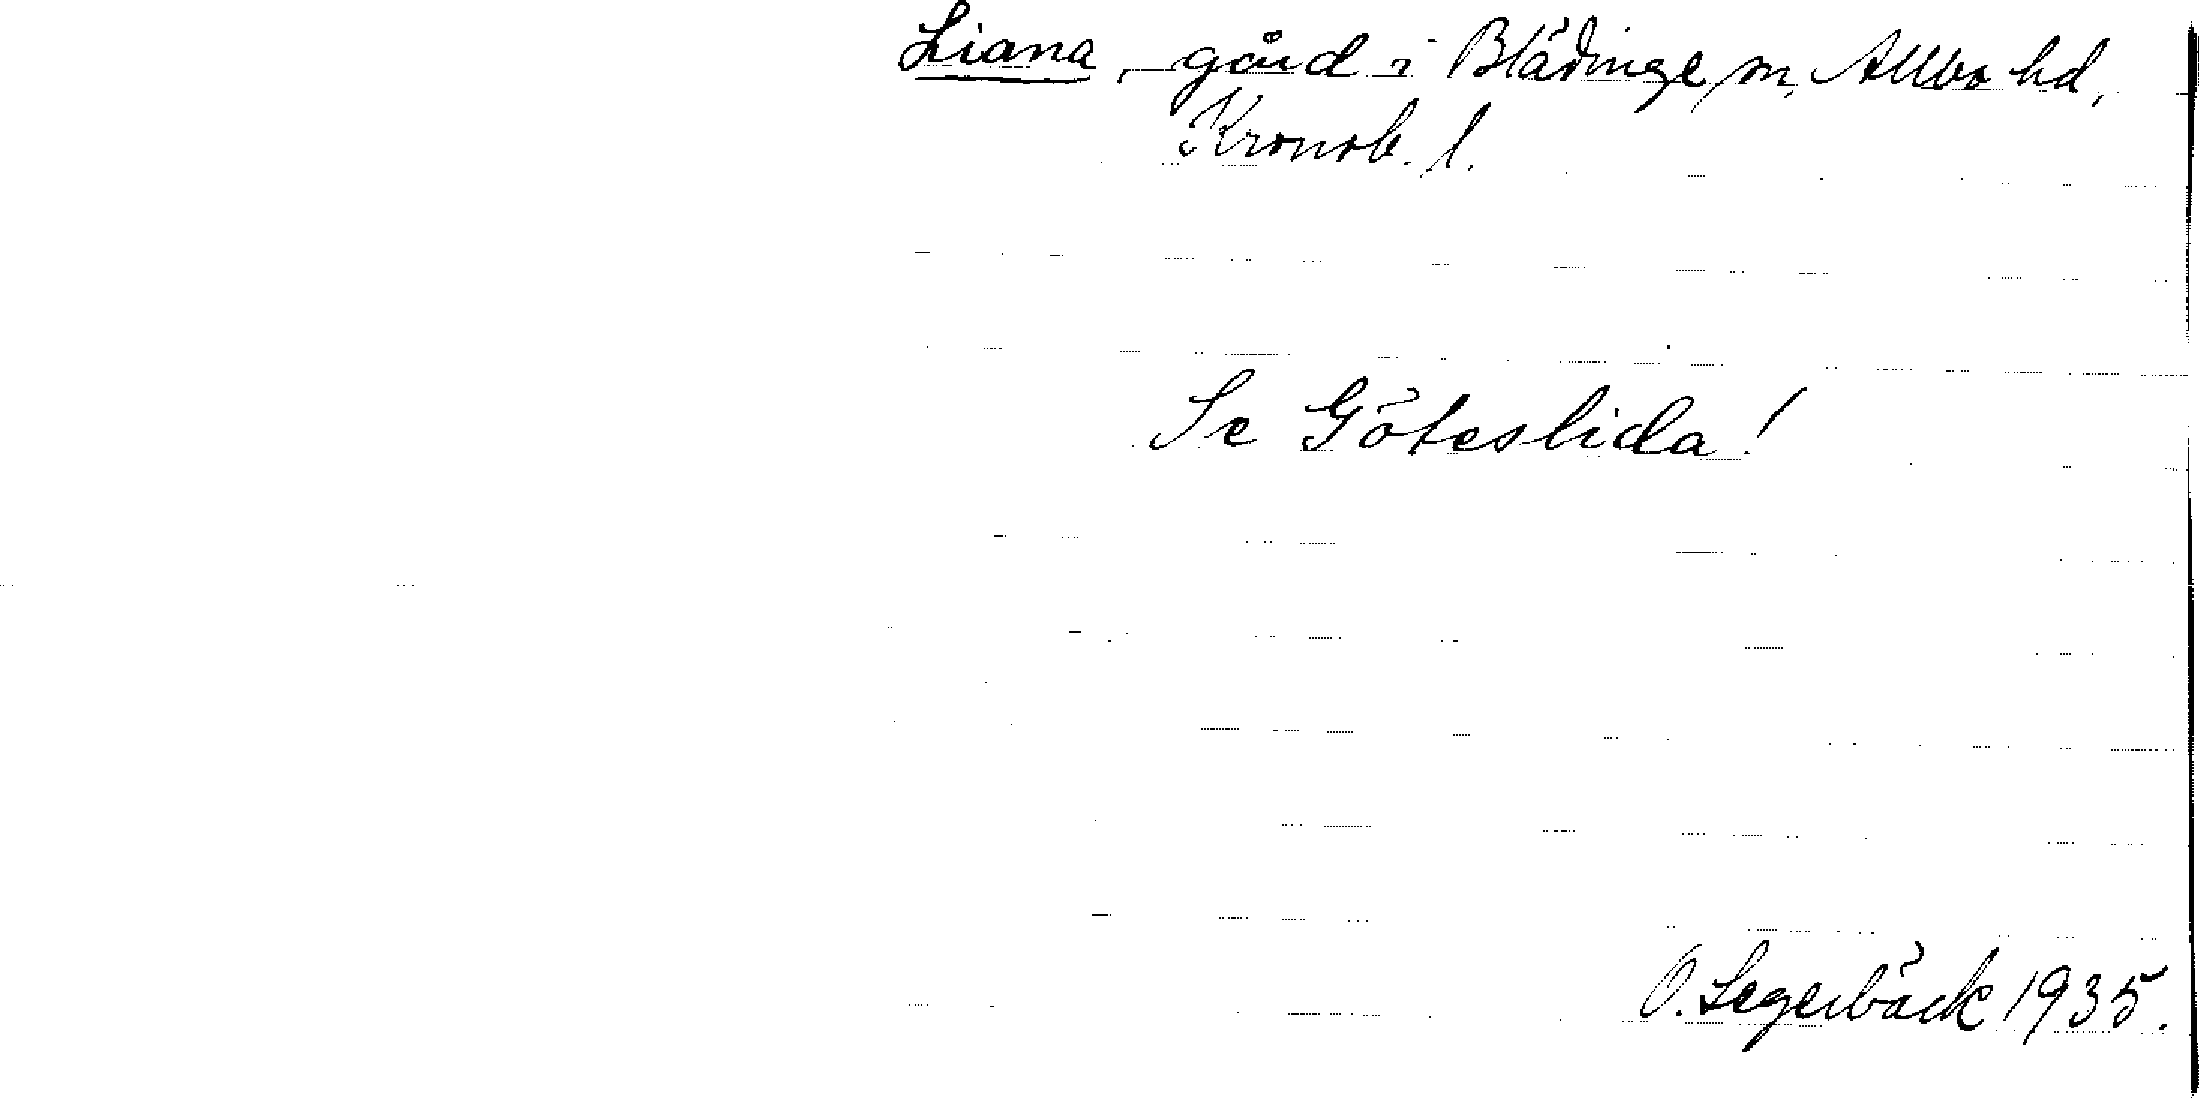 Liana, gård i Blädinge sn, Allbo hd,
Kronob. l.
Se Göteslida!
O. Segerbäck 1935.